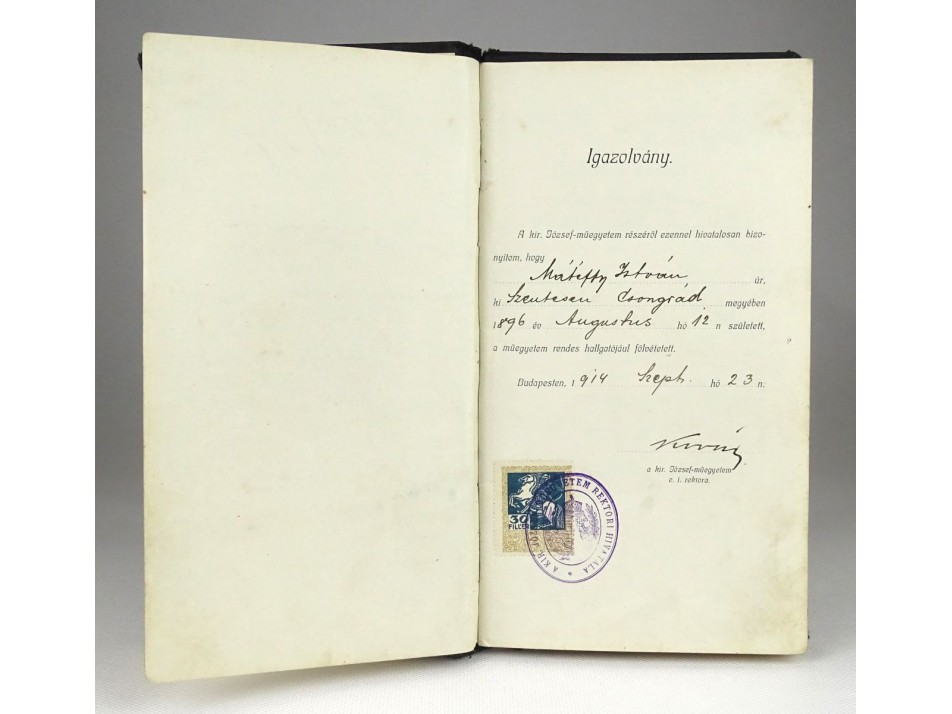 Igazolvány.
A kir. József-műegyetem részéről ezennel hivatalosan bizo-
nyítom, hogy
Mátéffy István úr,
ki Szentesen Csongrád megyében
1896 év Augustus hó 12 n született,
a műegyetem rendes hallgatójául fölvétetett.
Budapesten, 1914 Szept. hó 23 n.
a kir. József-műegyetem
e. i. rektora.
30
FILLÉR
A KIR. JÓZSEF MŰEGYETEM REKTORI HIVATALA